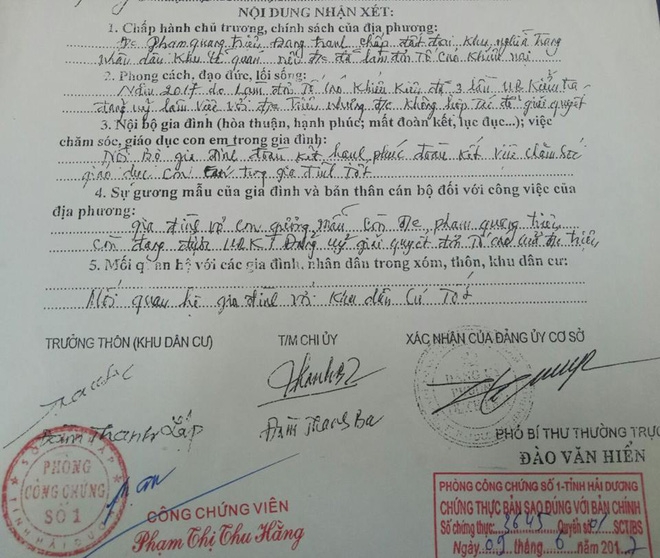 NỘI DUNG NHẬN XÉT:
1. Chấp hành chủ trương, chính sách của địa phương:
Đ/c Phạm quang Triều Đang tranh chấp đất đai khu nghĩa trang
nhân dân khu quan nên đ/c đã làm đơn Tố cáo khiếu nại
2. Phong cách, đạo đức, lối sống:
Năm 2017 do làm đơn Tố cáo khiếu kiện đã 3 lần UB Kiểm tra
đảng uỷ làm việc với đ/c Triều nhưng đ/c không hợp tác để giải quyết
3. Nội bộ gia đình (hòa thuận, hạnh phúc; mất đoàn kết, lục đục...); việc
chăm sóc, giáo dục con em trong gia đình:
Nội bộ gia đình đoàn kết hạnh phúc đoàn kết việc chăm sóc
giáo dục con em trong gia đình Tốt
4. Sự gương mẫu của gia đình và bản thân cán bộ đối với công việc của
địa phương:
gia đình vợ con gương mẫu Còn Đ/c phạm quang Triều
còn đang được UBKT Đảng uỷ giải quyết đơn Tố cáo của đ/c Triều
5. Mối quan hệ với các gia đình, nhân dân trong xóm, thôn, khu dân cư:
Mối quan hệ gia đình với khu dân cư Tốt
TRƯỞNG THÔN (KHU DÂN CƯ)
T/M CHI ỦY
XÁC NHẬN CỦA ĐẢNG ỦY CƠ SỞ
Đàm Thanh Lấp
Đàm Thanh Ba
PHÓ BÍ THƯ THƯỜNG TRỰC
ĐÀO VĂN HIỂN
PHÒNG
CÔNG CHỨNG
SỐ 1
CÔNG CHỨNG VIÊN
Phạm Thị Thu Hằng
PHÒNG CÔNG CHỨNG SỐ 1-TỈNH HẢI DƯƠNG
CHỨNG THỰC BẢN SAO ĐÚNG VỚI BẢN CHÍNH
Số chứng thực: 3645 Quyển số: 01 SCT/BS
Ngày 09 tháng 6 năm 201